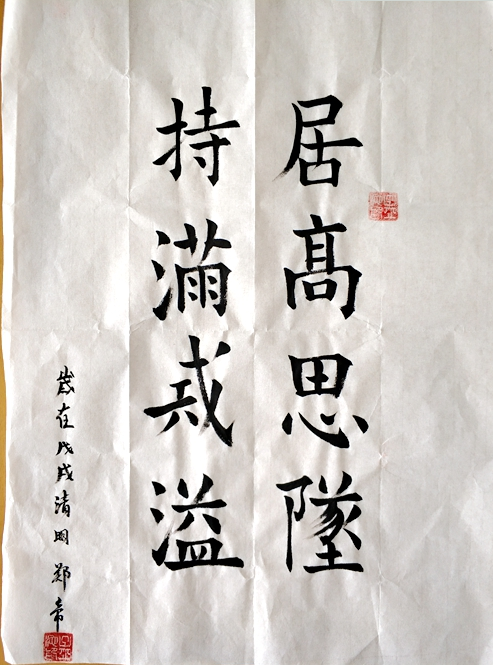 居髙思墜
持滿戒溢
歲在戊戌清明鄭帝